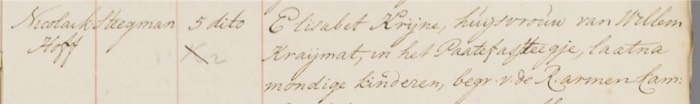 Nicolaas Steegman 5 dito Elisabet Krijne, húÿsvroúw van Willem
Hoff X 2 Kraÿmat, in het Paatefasteegje, laat na
mondige kinderen, begr. v. de R. armen Cam: